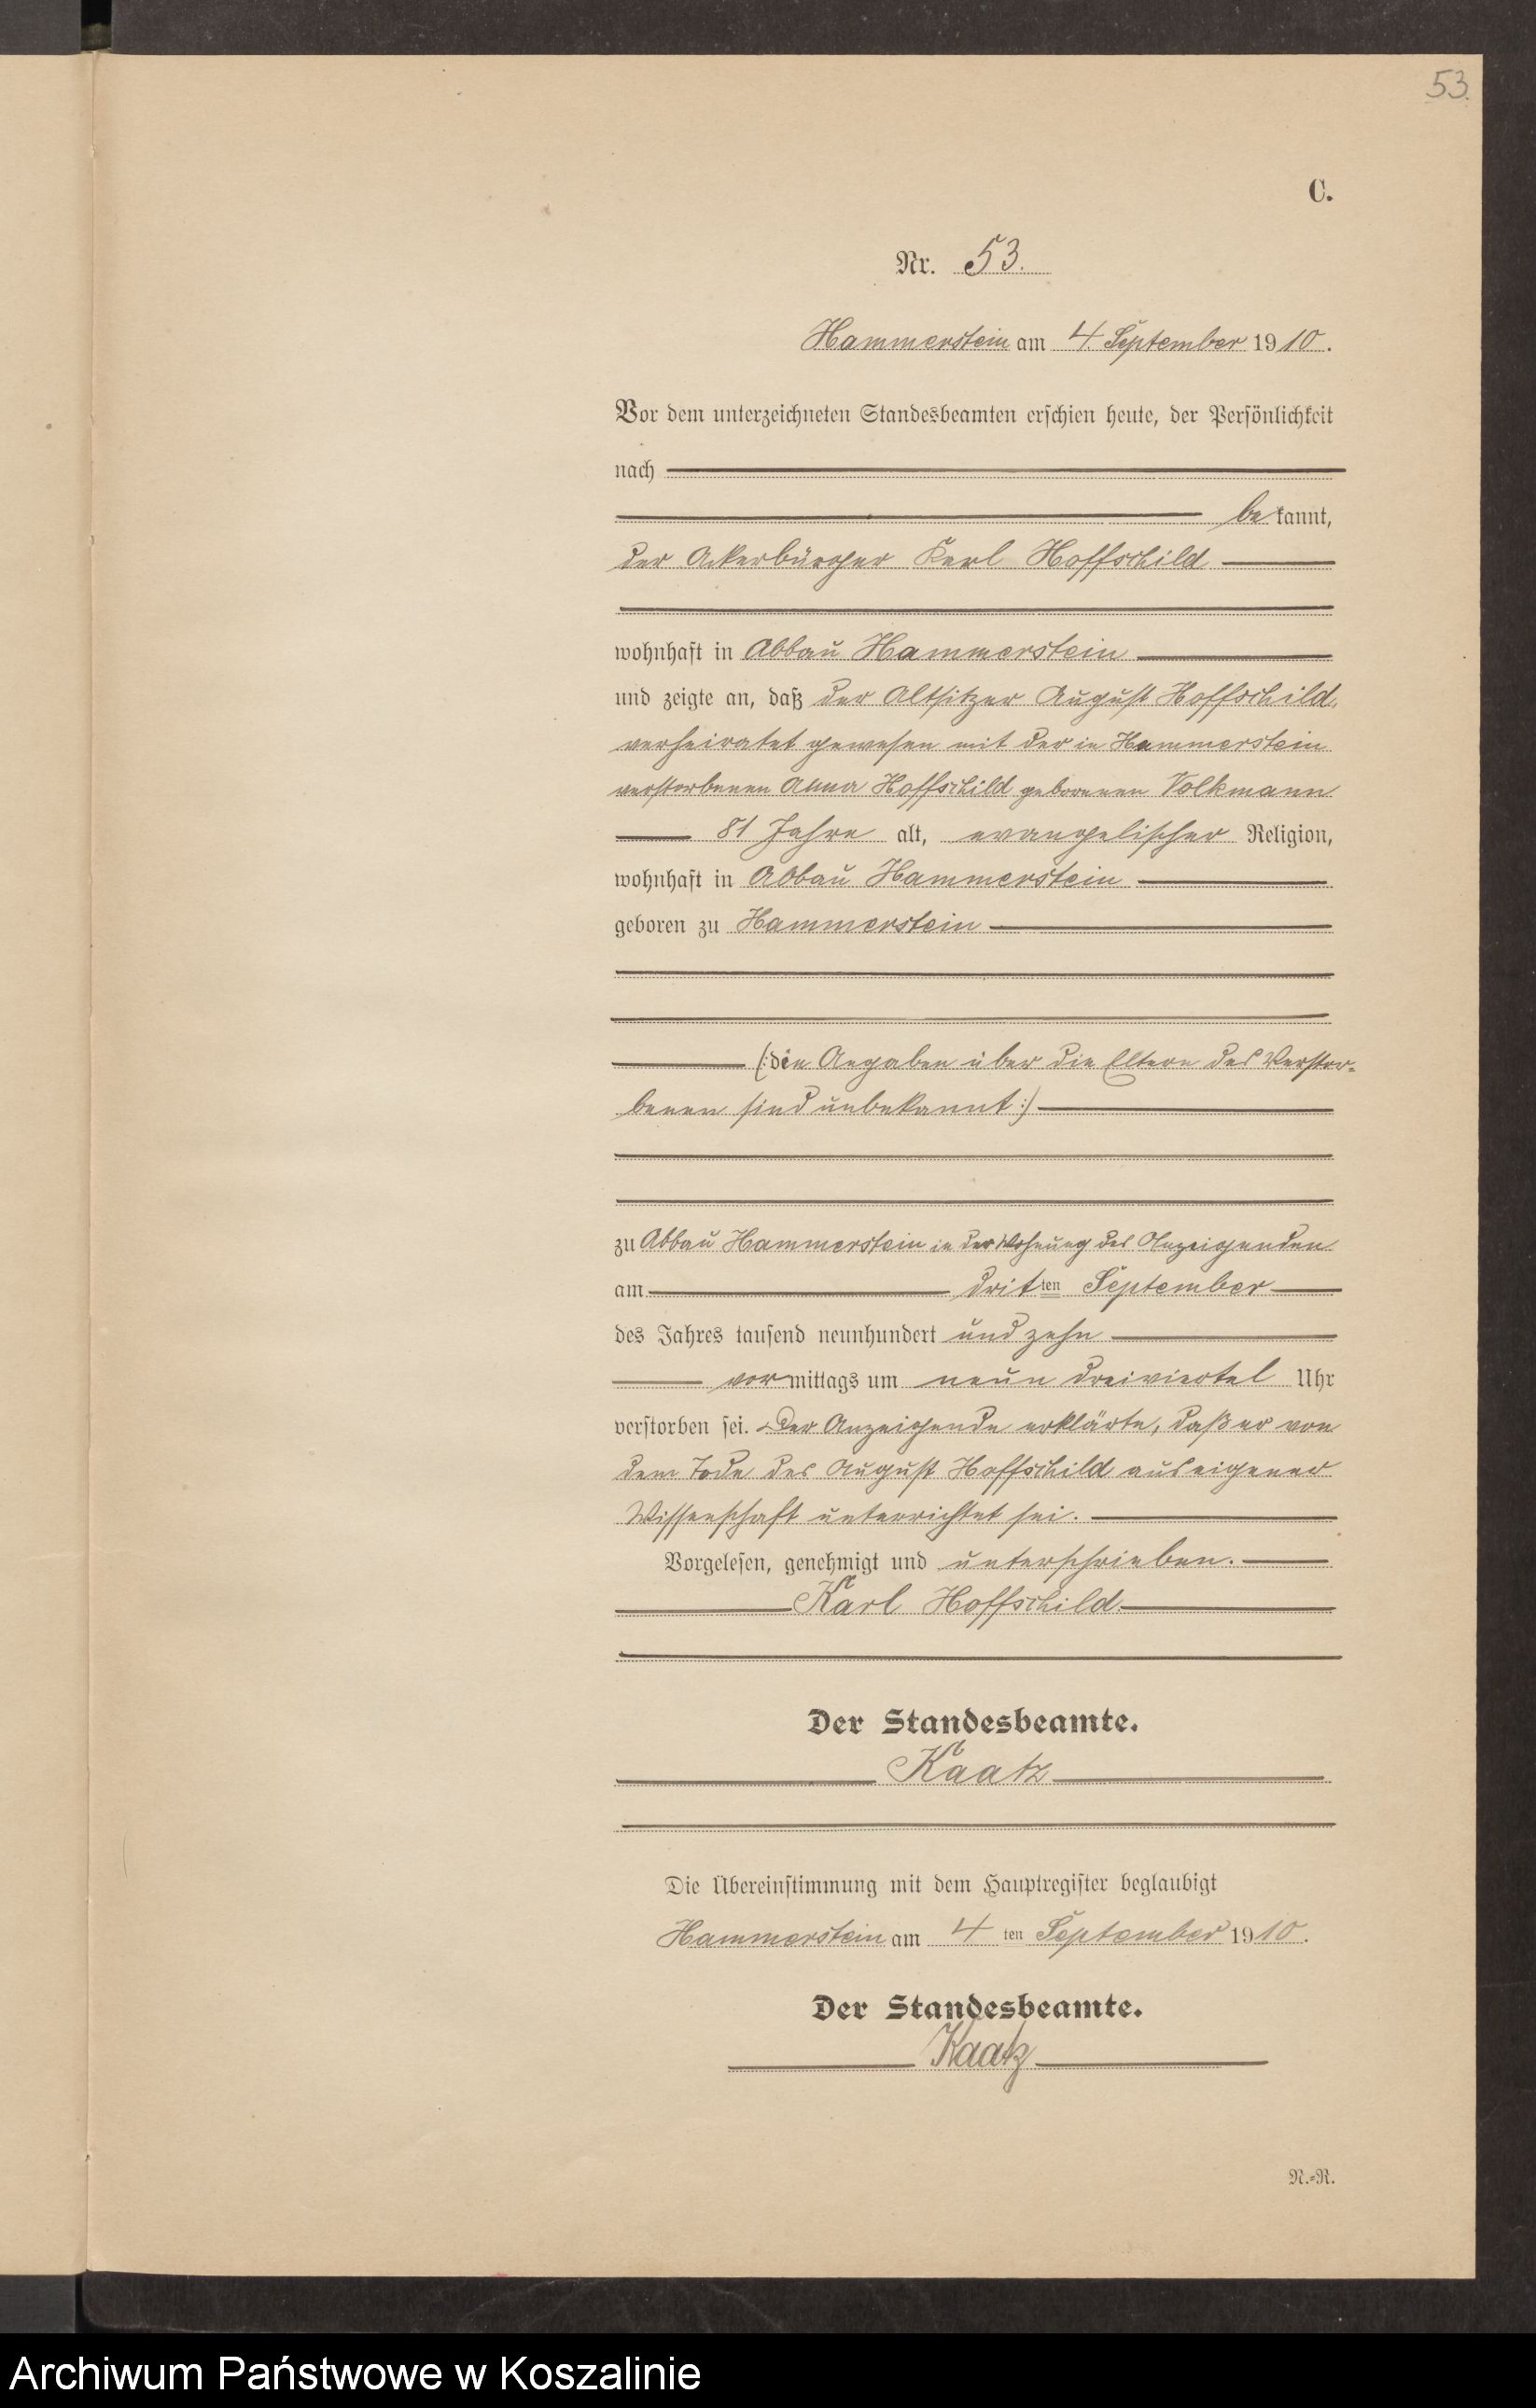 53.
C.
Nr. 53.
Hammerstein am 4. September 1910.
Vor dem unterzeichneten Standesbeamten erschien heute, der Persönlichkeit
nach
bekannt,
der Ackerbürger Karl Hoffschild
wohnhaft in Abbau Hammerstein
und zeigte an, daß der Altsitzer August Hoffschild,
verheiratet gewesen mit der in Hammerstein
verstorbenen Anna Hoffschild geborenen Volkmann
81 Jahre alt, evangelischer Religion,
wohnhaft in Abbau Hammerstein
geboren zu Hammerstein
(:die Angaben über die Eltern des Verstor-
benen sind unbekannt:)
zu Abbau Hammerstein in der Wohnung des Anzeigenden
am dritten September
des Jahres tausend neunhundert und zehn
vormittags um neun dreiviertel Uhr
verstorben sei. Der Anzeigende erklärte, daß er von
dem Tode des August Hoffschild aus eigener
Wissenschaft unterrichtet sei.
Vorgelesen, genehmigt und unterschrieben.
Karl Hoffschild.
Der Standesbeamte.
Kaatz
Die Übereinstimmung mit dem Hauptregister beglaubigt
Hammerstein am 4ten September 1910.
Der Standesbeamte.
Kaatz
N.=R.
Archiwum Państwowe w Koszalinie